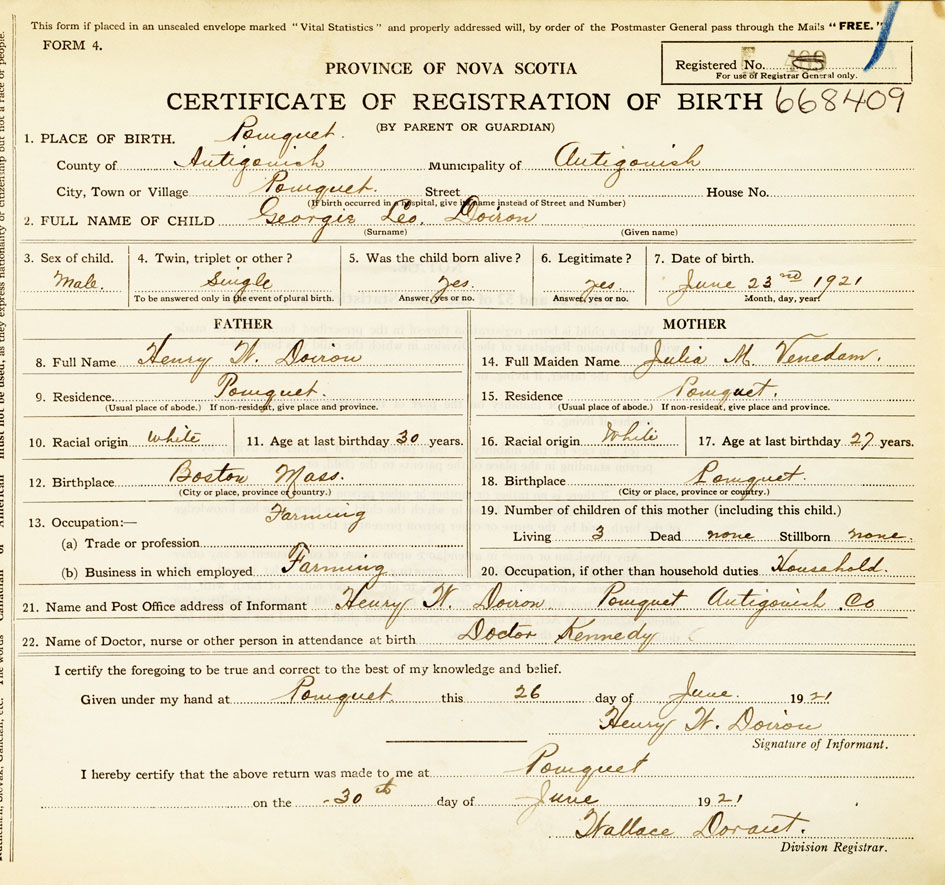 This form if placed in an unsealed envelope marked "Vital Statistics" and properly addressed will, by order of the Postmaster General pass through the Mails "FREE."
FORM 4.
Registered No.
For use of Registrar General only.
PROVINCE OF NOVA SCOTIA
CERTIFICATE OF REGISTRATION OF BIRTH 668409
(BY PARENT OR GUARDIAN)
1. PLACE OF BIRTH. Pomquet.
County of Antigonish Municipality of Antigonish
City, Town or Village Pomquet. Street House No.
(If birth occurred in a hospital, give its name instead of Street and Number)
2. FULL NAME OF CHILD Georgie Leo. Doiron
(Surname) (Given name)
3. Sex of child. 4. Twin, triplet or other? 5. Was the child born alive? 6. Legitimate? 7. Date of birth.
Male. Single yes. yes. June 23nd 1921
To be answered only in the event of plural birth. Answer, yes or no. Answer, yes or no. Month, day, year.
FATHER MOTHER
8. Full Name Henry W. Doiron 14. Full Maiden Name Julia M. Venedam.
9. Residence. Pomquet. 15. Residence Pomquet.
(Usual place of abode.) If non-resident, give place and province. (Usual place of abode.) If non-resident, give place and province.
10. Racial origin White 11. Age at last birthday 30 years. 16. Racial origin White 17. Age at last birthday 27 years.
12. Birthplace Boston Mass. 18. Birthplace Pomquet.
(City or place, province or country.) (City or place, province or country.)
13. Occupation:— Farming 19. Number of children of this mother (including this child.)
(a) Trade or profession Living 3 Dead none Stillborn none.
(b) Business in which employed Farming 20. Occupation, if other than household duties Household.
21. Name and Post Office address of Informant Henry W. Doiron Pomquet Antigonish Co
22. Name of Doctor, nurse or other person in attendance at birth Doctor Kennedy
I certify the foregoing to be true and correct to the best of my knowledge and belief.
Given under my hand at Pomquet. this 26 day of June. 1921
Henry W. Doiron
Signature of Informant.
I hereby certify that the above return was made to me at Pomquet
on the 30th day of June 1921
Wallace Dorant.
Division Registrar.